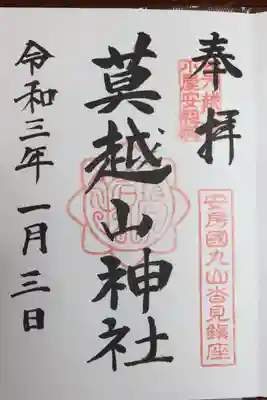 奉拝
安房國丸山沓見鎮座
莫越山神社
令和三年一月三日